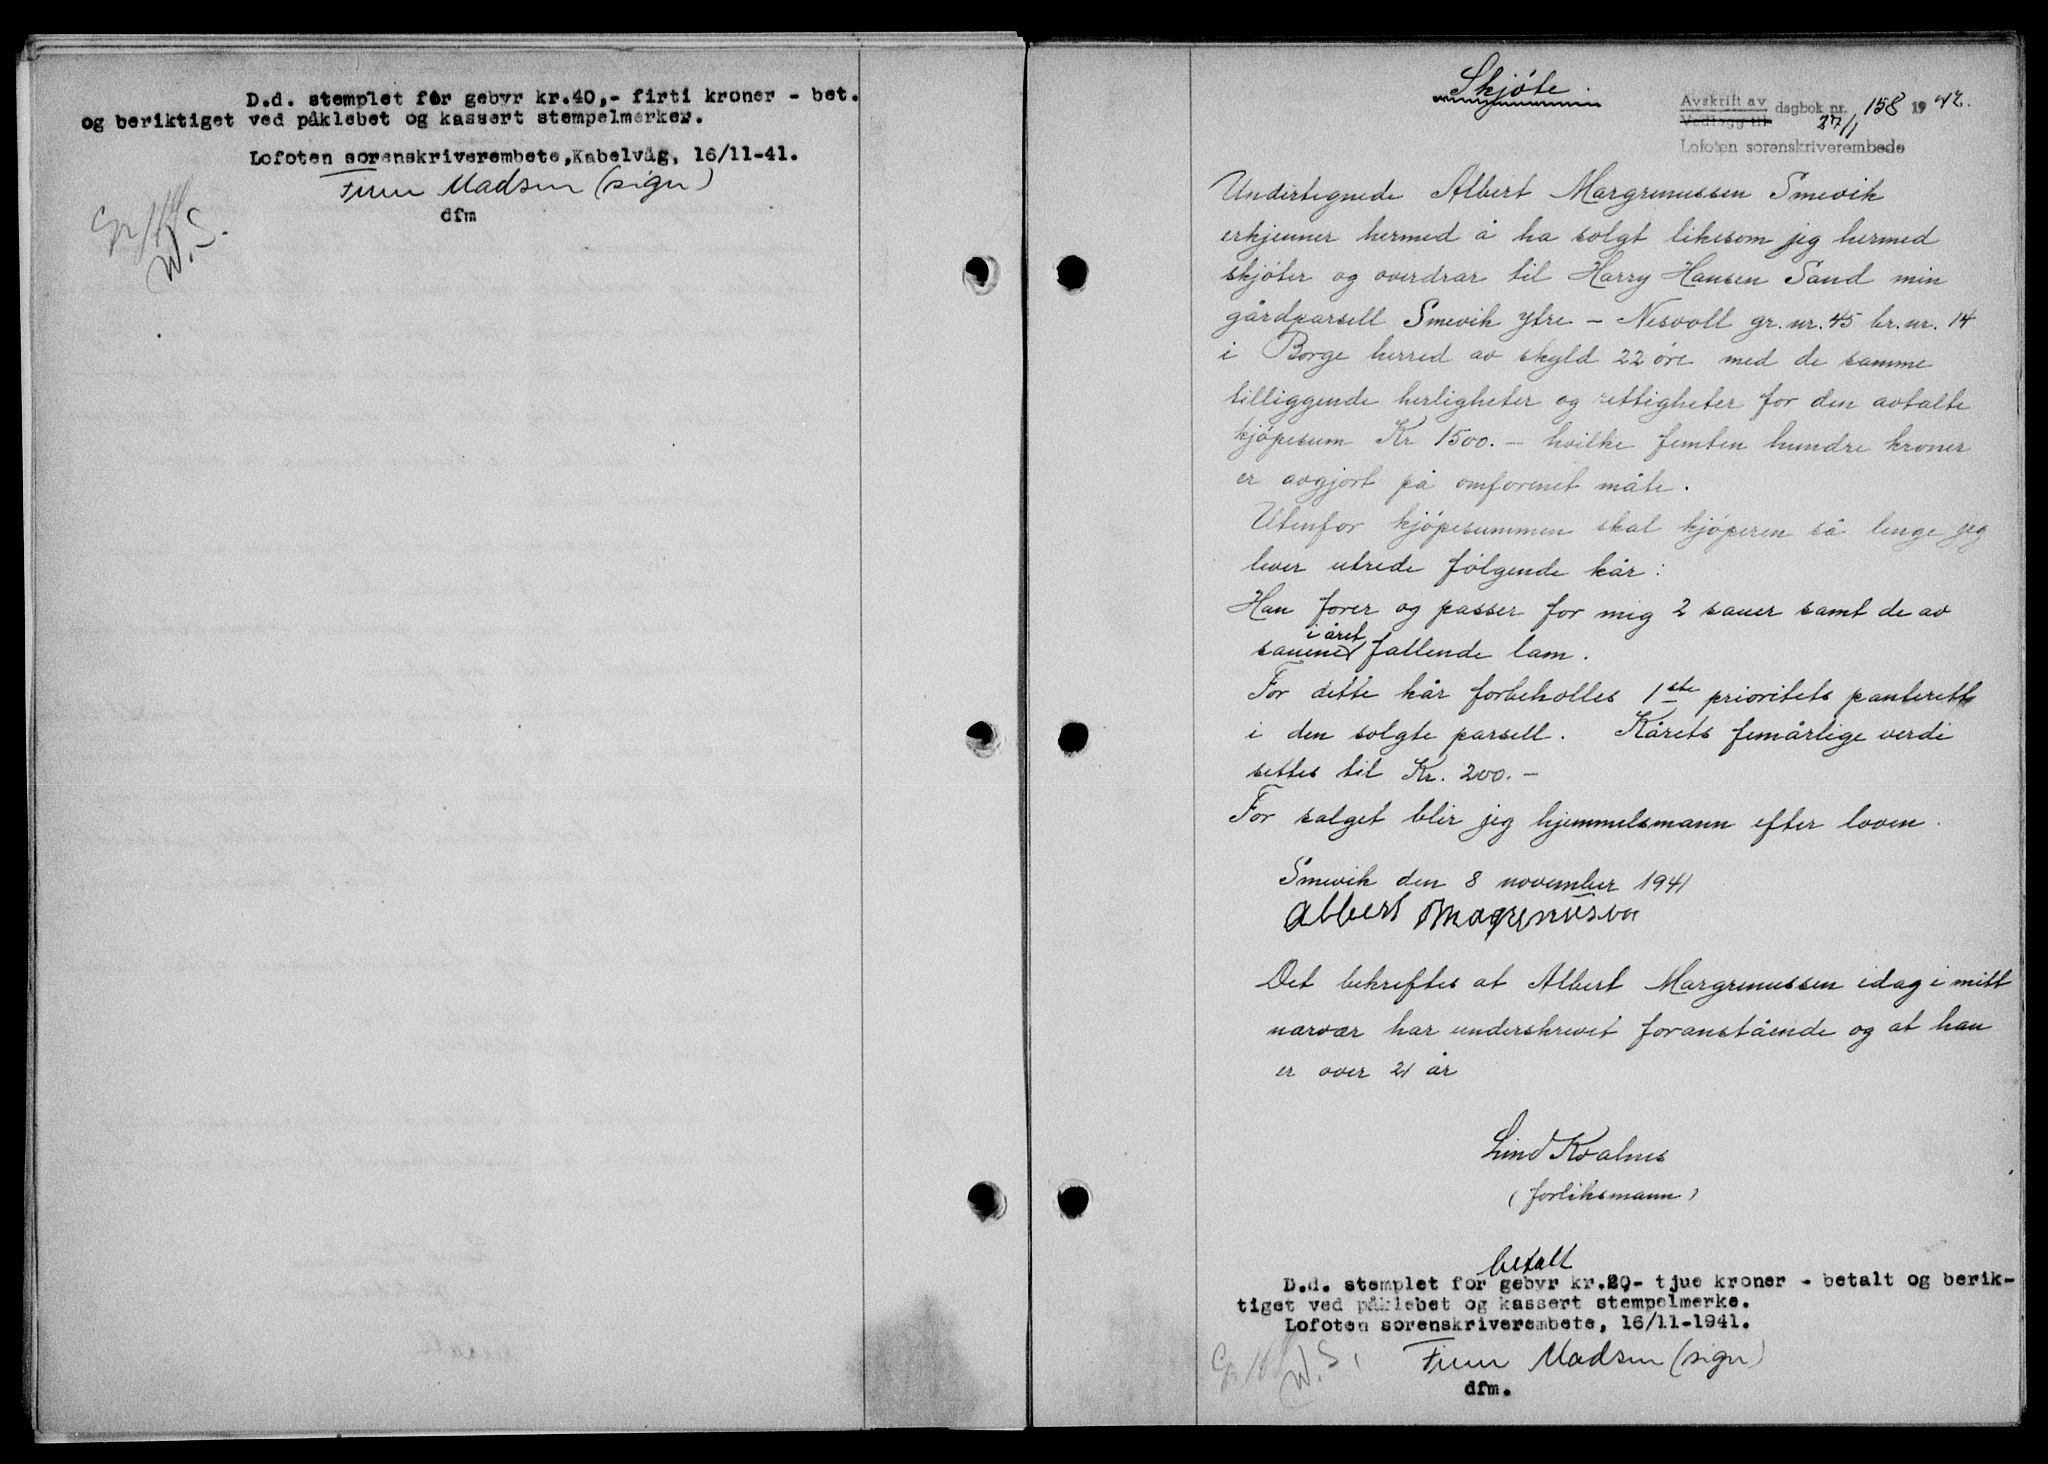 D.d. stemplet før gebyr kr.40,- firti kroner - bet.
og beriktiget ved påklebet og kassert stempelmerker.
Lofoten sorenskriverembete, Kabelvåg, 16/11-41.
Finn Madsen (sign)
dfm
W.S.
Skjöte.
Avskrift av
Vedlegg til
dagbok nr. 158 1942.
27/1
Lofoten sorenskriverembede
Undertegnede Albert Margrenussen Smevik
erkjenner hermed å ha solgt likesom jeg hermed
skjöter og overdrar til Harry Hansen Sand min
gårdparsell Smevik ytre - Nesvoll gr. nr. 45 br. nr. 14
i Borge herred av skyld 22 öre med de samme
tilliggende herligheter og rettigheter for den avtalte
kjöpesum Kr 1500. - hvilke femten hundre kroner
er avgjort på omforenet måte.
Utenfor kjöpesummen skal kjöperen så lenge jeg
lever utrede fölgende kår:
Han forer og passer for mig 2 sauer samt de av
i året
sauene fallende lam.
For dette kår forbeholles 1ste prioritets panterett
i den solgte parsell. Kårets femårlige verdi
settes til Kr. 200. -
For salget blir jeg hjemmelsmann efter loven.
Smevik den 8 november 1941
Albert
Det bekreftes at Albert Margrenussen idag i mitt
nærvær har underskrevet foranstående og at han
er over 21 år
Lind Kvalnes
(forliksmann)
betalt
D.d. stemplet for gebyr kr.20,- tjue kroner - betalt og berik-
tiget ved påklebet og kassert stempelmerke.
Lofoten sorenskriverembete, 16/11-1941.
W.S.
Finn Madsen (sign)
dfm.